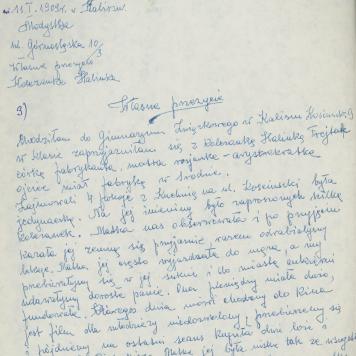 11.I.1909r. w Kaliszu
Modystka
ul. Górnośląska 10/3
Własne przeżycie
Koleżanka Halinka
9) Własne przeżycie
Chodziłam do Gimnazjum Związkowego w Kaliszu Kościuszki 9
w klasie zaprzyjaźniłam się z koleżanką Halinką Trojtak
córką fabrykanta, matka rosjanka - arystokratka
ojciec miał fabrykę w środnie.
Zajmowali 4 pokoje z kuchnią na ul. Kościuszki była
jedynaczką. Na jej imieniny było zaproszonych kilka
koleżanek. Matka nas obserwowała i po przyjęciu
kazała jej ze mną się przyjaźnić, razem odrabiałyśmy
lekcje. Matka jej często wyjeżdżała do męża, a my
przebierałyśmy się w jej suknie i do miasta cukierni
udawałyśmy dorosłe panie. Ona pieniędzy miała dużo,
fundowała. Któregoś dnia mówi chodźmy do kina
jest film dla młodzieży niedozwolony, przebierzemy się
i pójdziemy na ostatni seans kupiła dwie loże
Matka jej była